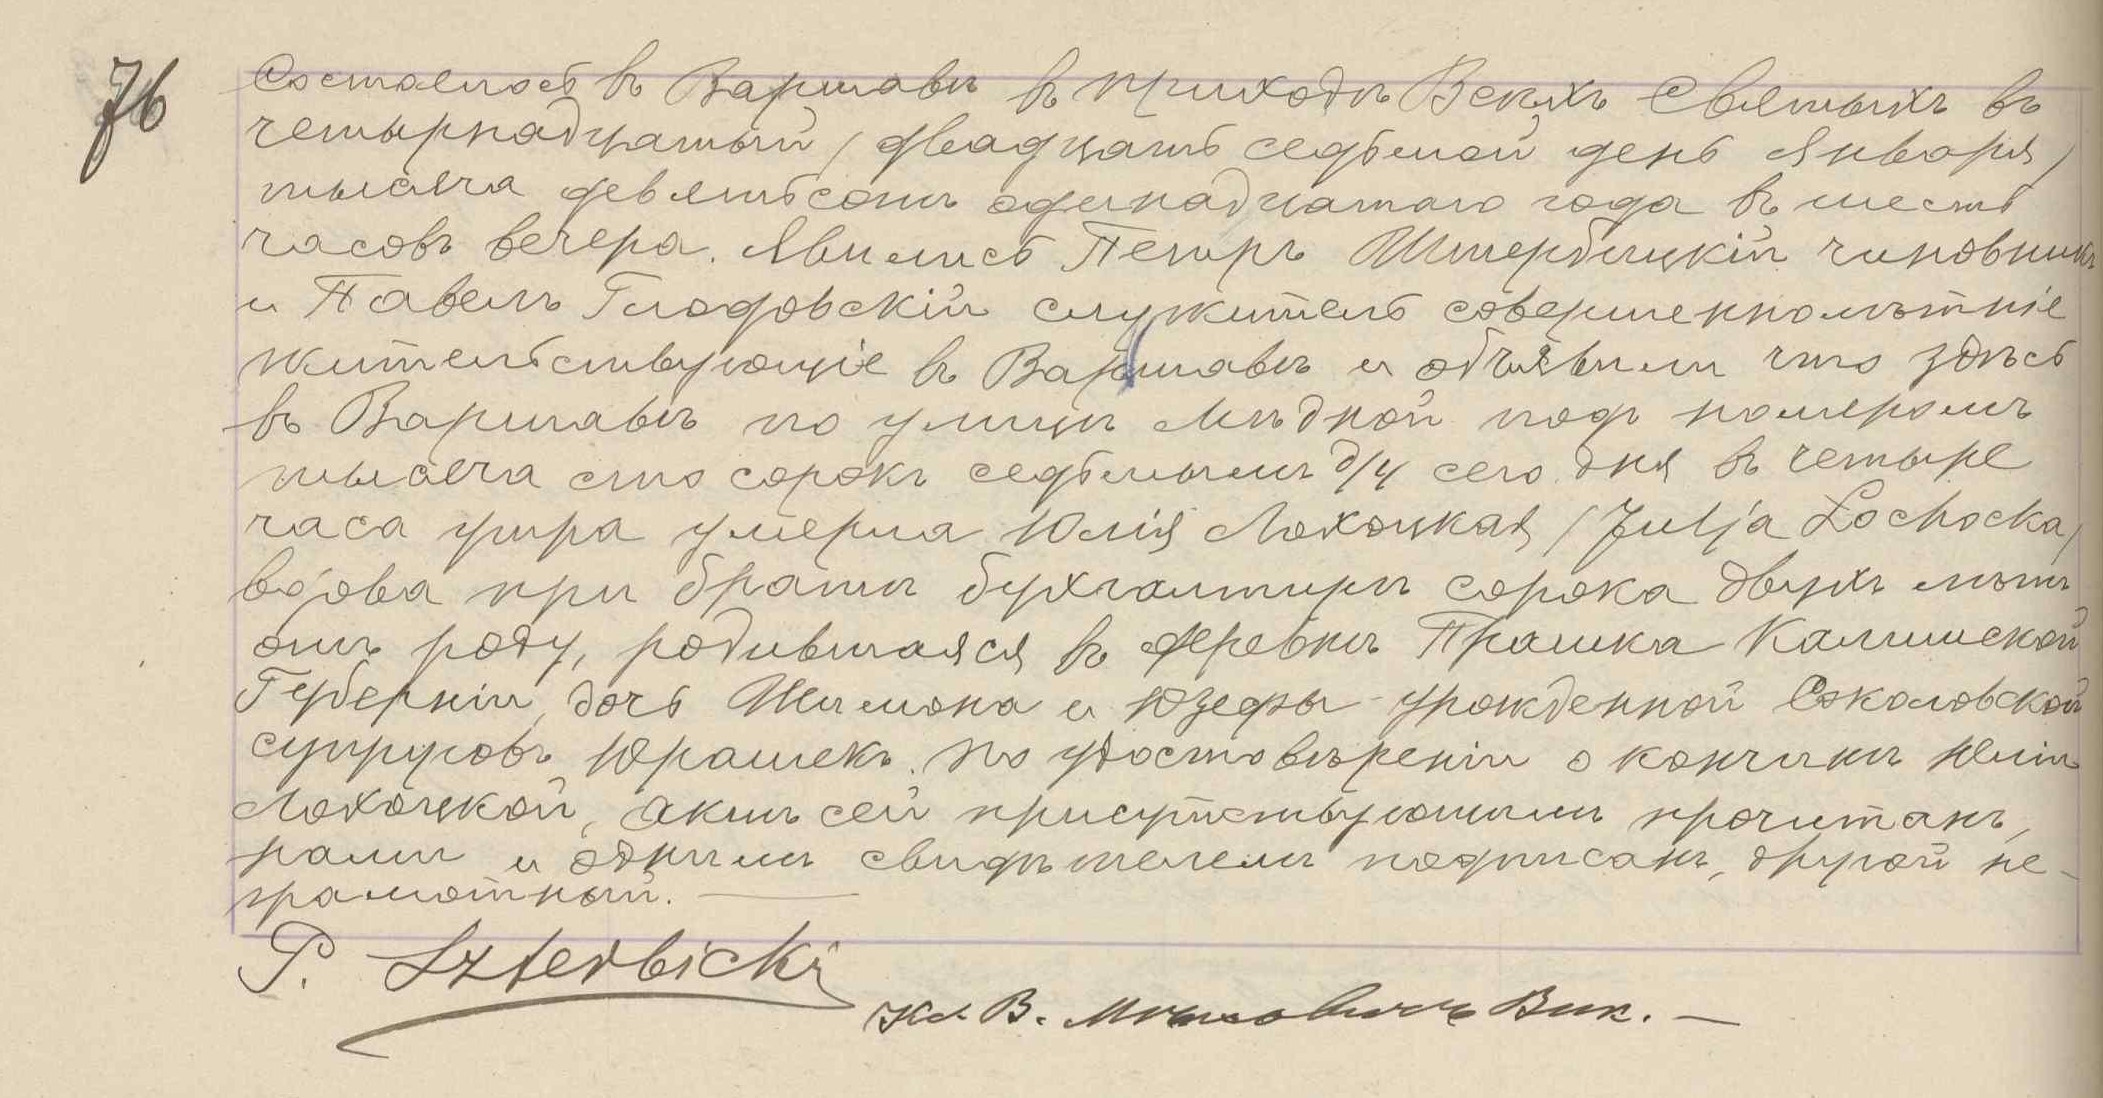 76
Состоялось въ Варшавѣ въ приходѣ Всѣхъ Святыхъ въ
четырнадцатый / двадцать седьмой день Января /
тысяча девятьсотъ одинадцатаго года въ шесть
часовъ вечера. Явились Петръ Штербицкій чиновникъ
и Павелъ Глодовскій служитель совершеннолѣтніе
жительствующіе въ Варшавѣ и объявили что здѣсь
въ Варшавѣ по улицѣ Мѣдной подъ номеромъ
тысяча сто сорокъ седьмымъ д/4 сего дня въ четыре
часа утра умерла Юлія Лохоцкая / Julja Lochocka /
вдова при братѣ бухгалтерѣ сорока двухъ лѣтъ
отъ роду, родившаяся въ деревнѣ Прашка Калишской
Губерніи, дочь Шимона и Юзефы урожденной Соколовской
супруговъ Юрашекъ. По удостовѣреніи о кончинѣ Юліи
Лохоцкой, актъ сей присутствующимъ прочитанъ,
нами и однимъ свидѣтелемъ подписанъ, другой не-
грамотный. —
P. Szterbicki
Кс. В. Вик. —